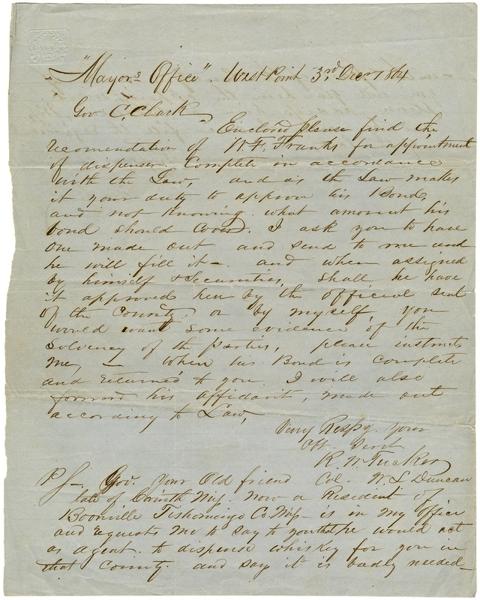 "Mayors Office". West Point 3rd Decr 1864
Gov C. Clark
Enclosed please find the
recomendation of W. F. Franks for appointment
of dispenser. Complete in accordance
with the Law, and as the Law makes
it your duty to approve his Bond,
and not knowing what amount his
bond should cover. I ask you to have
one made out and send to me and
he will fill it - and when assigned
by himself & Securities, shall he have
it approved here by the official seal
of the County, or by myself, you
would want some evidence of the
Solvency of the parties, please instruct
me, - When his Bond is complete
and returned to you. I will also
his affidavit, made out
according to Law,
Very Respy your
Obt Servt
R. W. Tucker
PS - Gov. your Old friend Col. W. L. Duncan
late of Corinth Miss. Now a resident of
Booneville Tishomingo Co. Miss - is in my Office
and requests me to say to you that he would act
as agent to dispense whiskey for you in
that County and say it is badly needed -